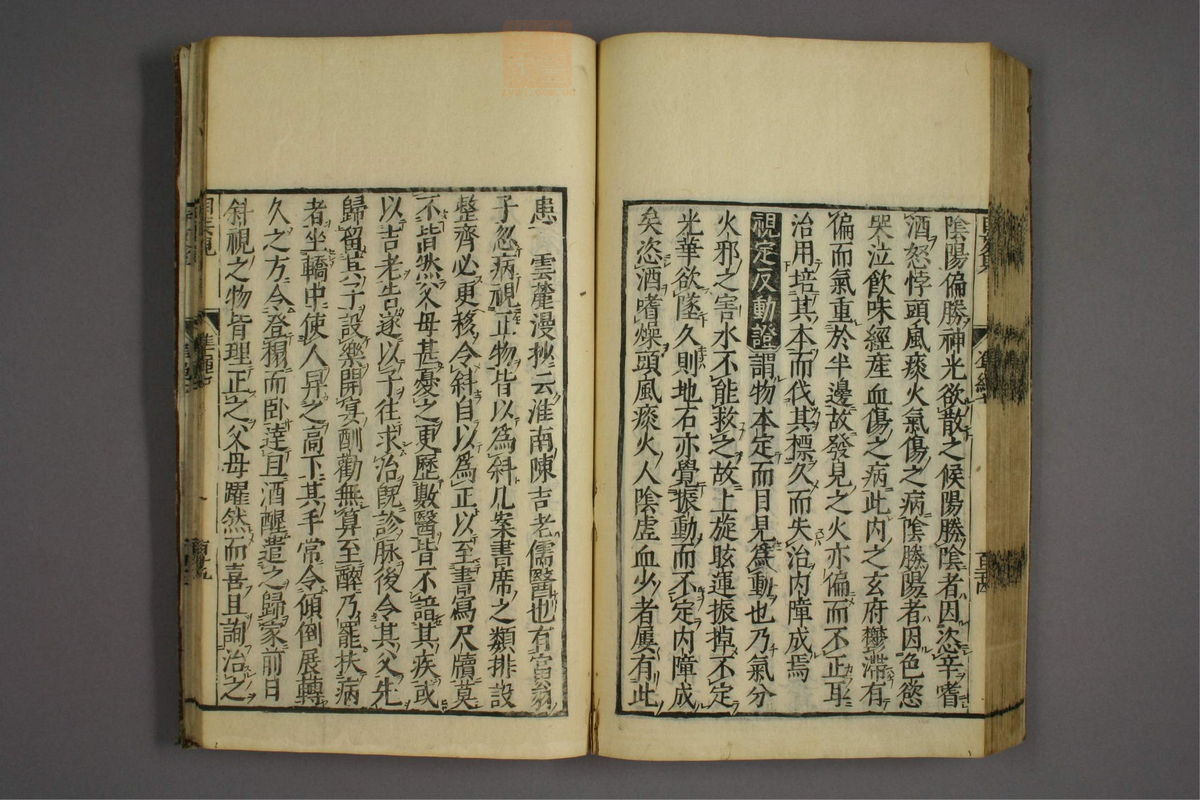 陰陽偏勝神光欲散之候陽勝陰者因恣辛嗜
酒怒悖頭風痰火氣傷之病陰勝陽者因色慾
哭泣飲味經產血傷之病此內之玄府鬱滯有
偏而氣重於半邊故發見之火亦偏而不正耳
治用培其本而伐其標久而失治內障成焉
視定反動證謂物本定而目見為動也乃氣分
火邪之害水不能救之故上旋眩運振掉不定
光華欲墜久則地石亦覺振動而不定內障成
矣恣酒嗜燥頭風痰火人陰虛血少者屢有此
患 雲麓漫抄云淮南陳吉老儒醫也有富翁
子忽病視正物皆以為斜几案書席之類排設
整齊必更移令斜自以為正以至書寫尺牘莫
不皆然父母甚憂之更歷數醫皆不諳其疾或
以吉老告遂以子往求治既診脉後令其父先
歸留其子設樂開宴酣勸無算至醉乃罷扶病
者坐轎中使人舁之高下其手常令傾倒展轉
久之方令登榻而臥達旦酒醒遣之歸家前日
斜視之物皆理正之父母躍然而喜且詢治之